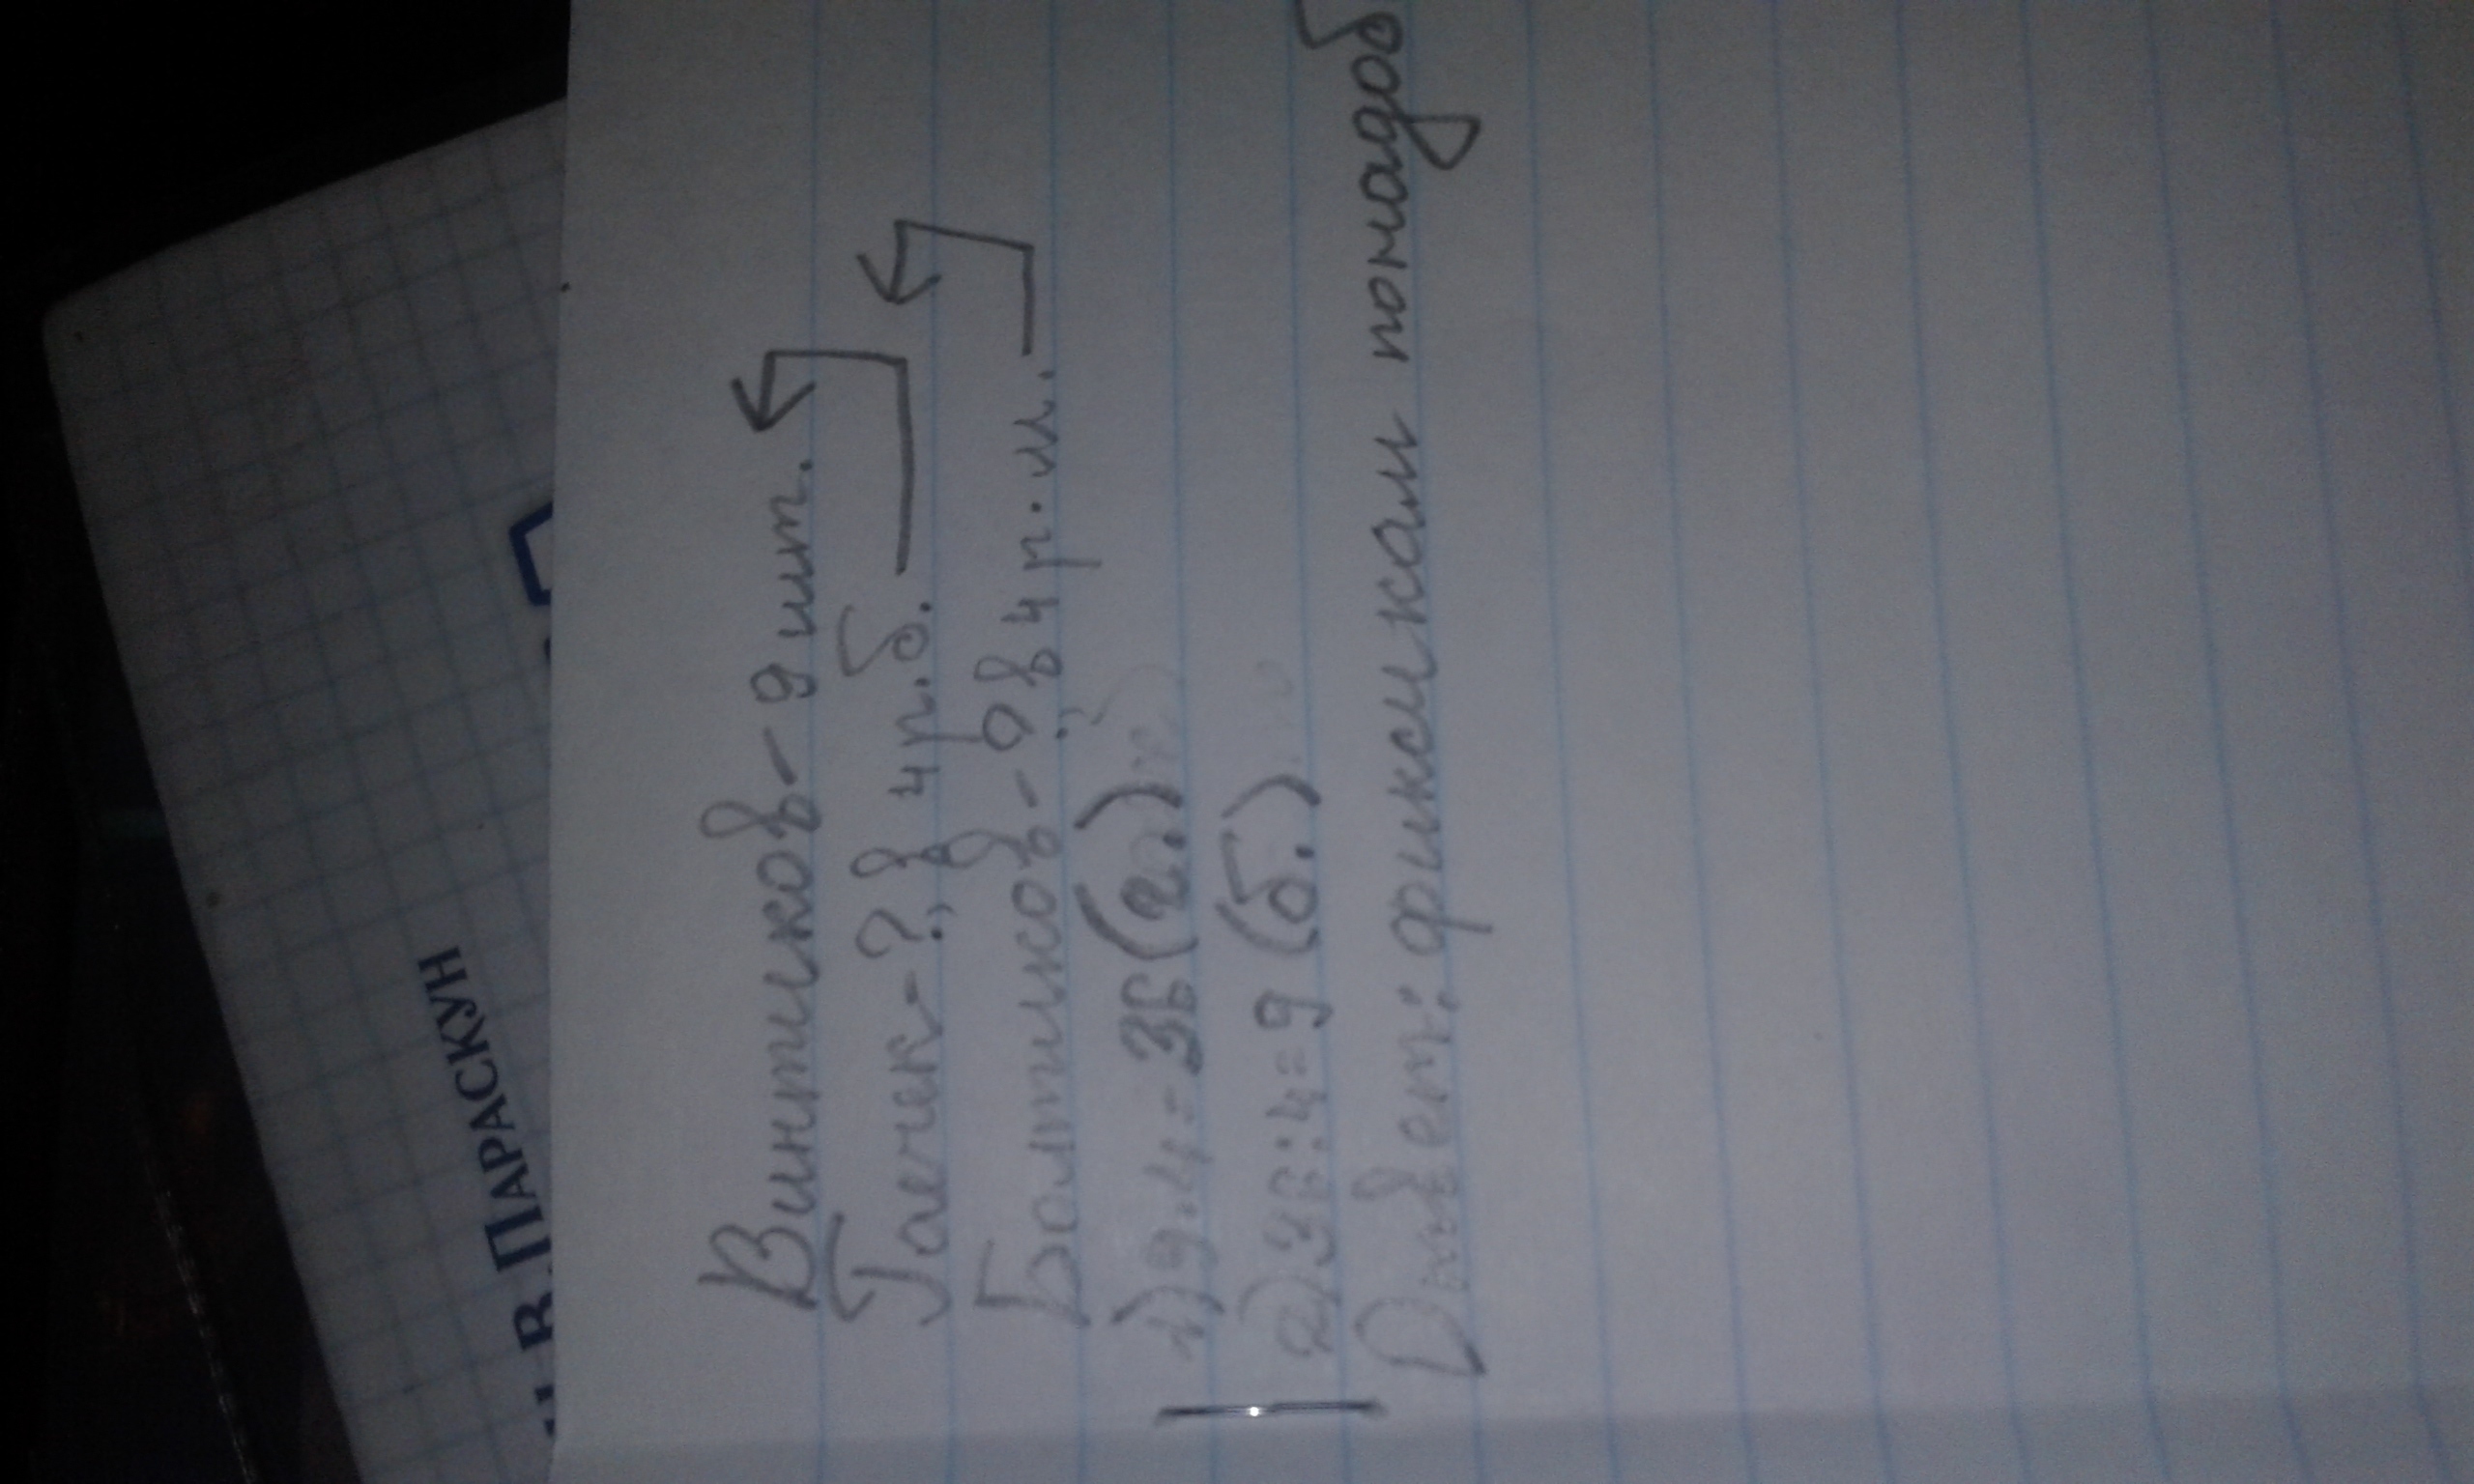 Н В. ПАРАСКУН
Винтиков - 9 шт.
Гаечек - ?, в 4 р. б.
Болтиков - ?, в 4 р. м.
1) 9·4=36 (г.)
2) 36:4=9 (б.)
Ответ: фиксикам понадоб